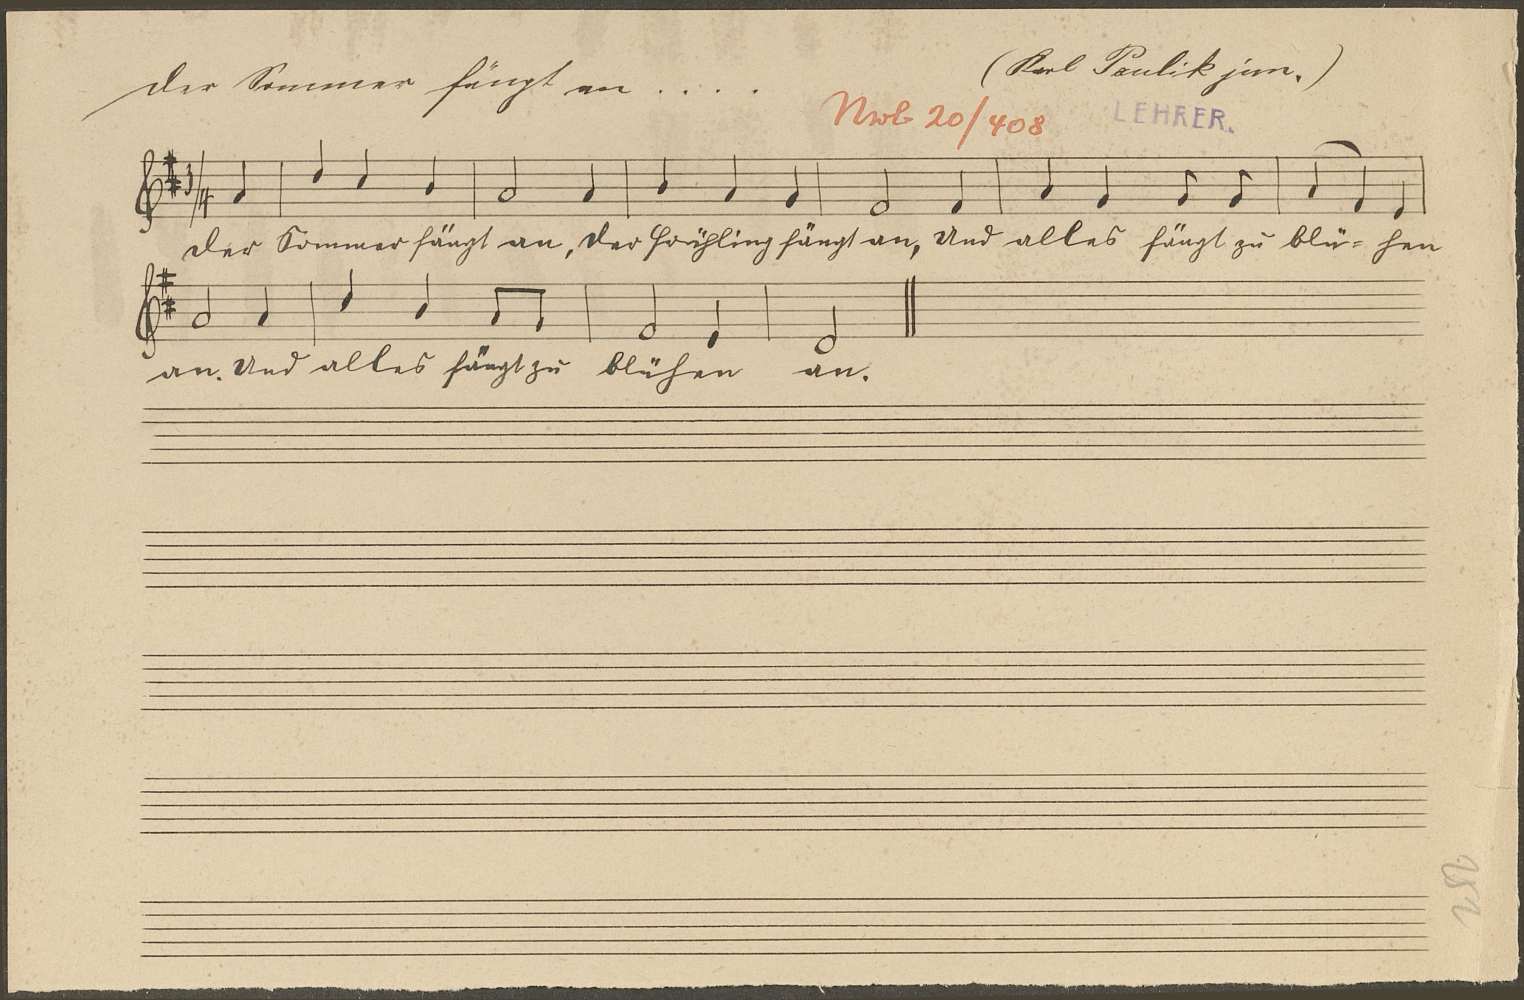 Der Sommer fängt an . . . .
(Karl Paulik jun.)
Nwb 20/408
LEHRER.
3/4
Der Sommer fängt an, Der Frühling fängt an, Und alles fängt zu blü= hen
an. Und alles fängt zu blühen an.